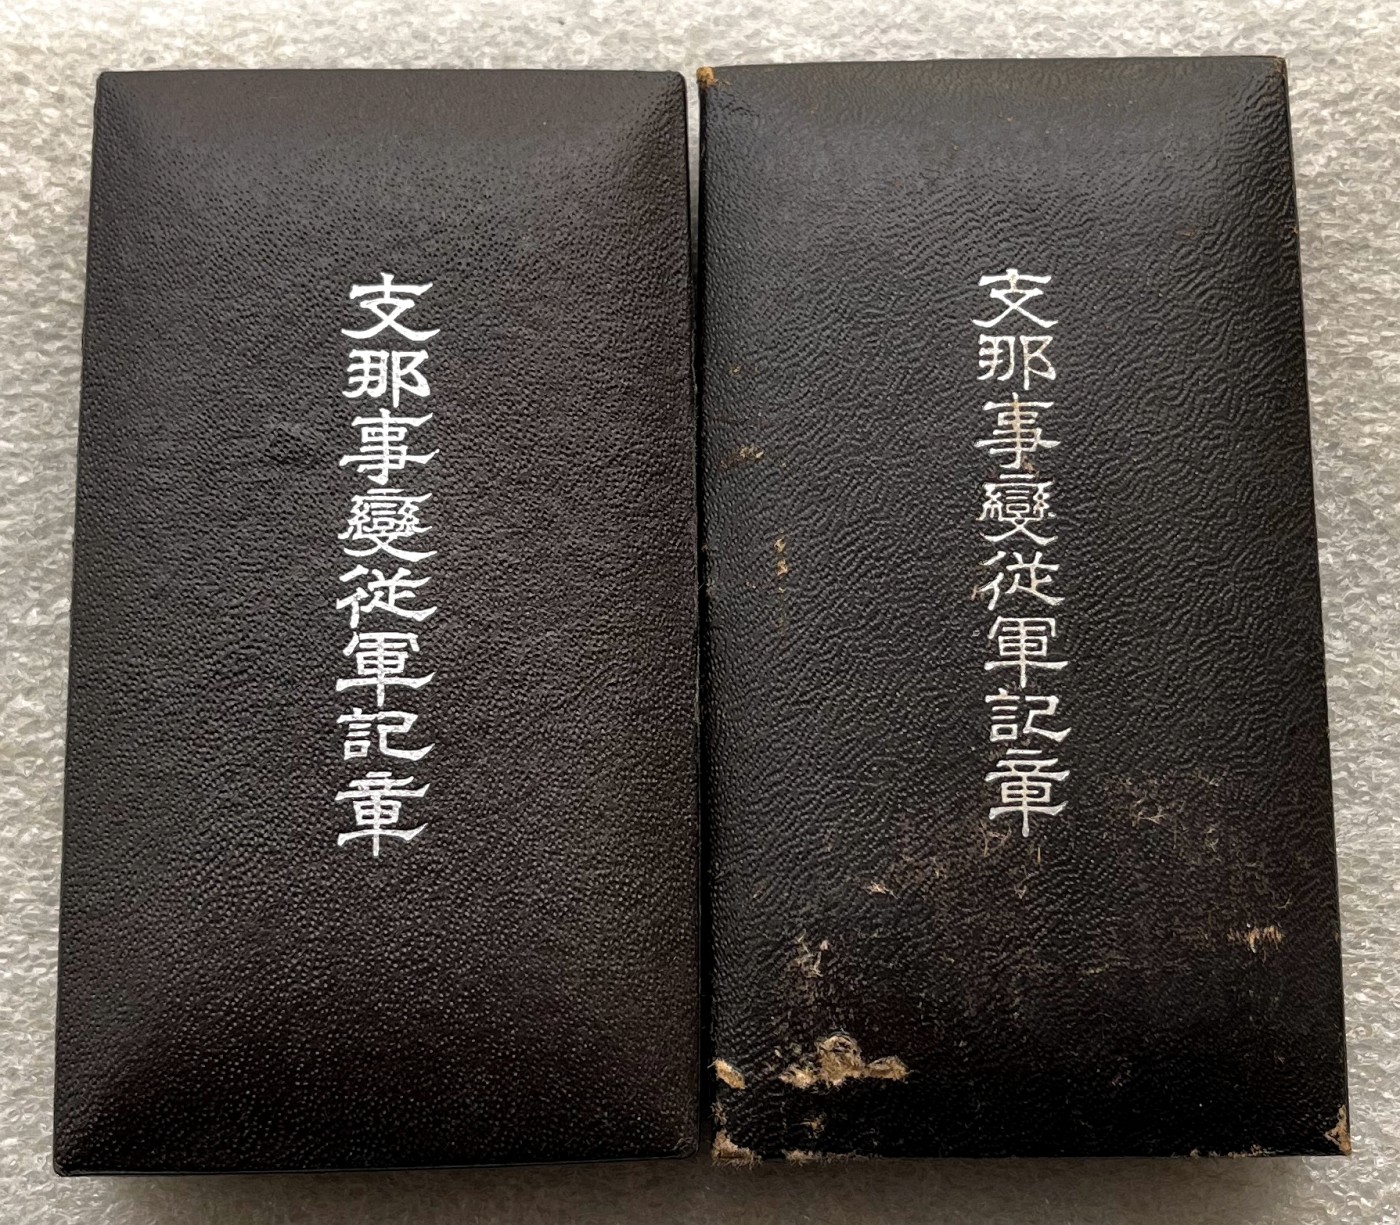 支那事變従軍記章
支那事變従軍記章